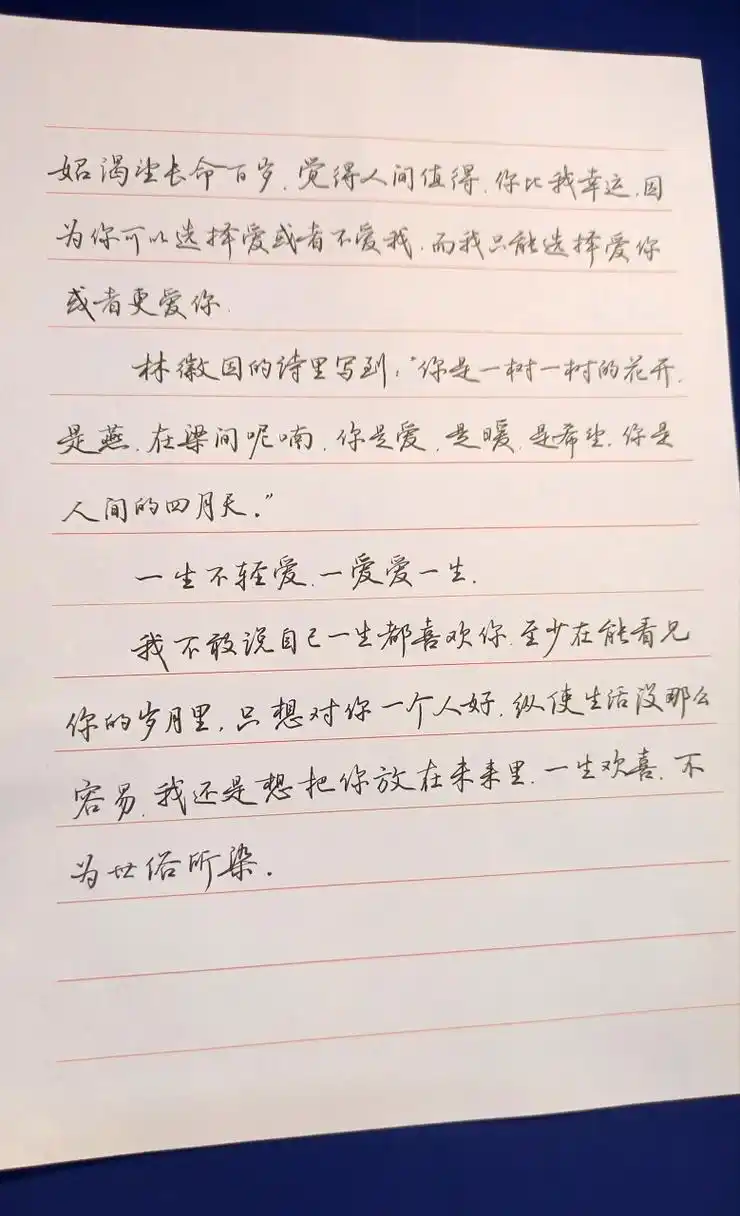 始渴望长命百岁,觉得人间值得,你比我幸运,因
为你可以选择爱或者不爱我,而我只能选择爱你
或者更爱你.
林徽因的诗里写到:“你是一树一树的花开,
是燕,在梁间呢喃,你是爱,是暖,是希望,你是
人间的四月天.”
一生不轻爱,一爱爱一生.
我不敢说自己一生都喜欢你,至少在能看见
你的岁月里,只想对你一个人好,纵使生活没那么
容易,我还是想把你放在未来里,一生欢喜,不
为世俗所染.